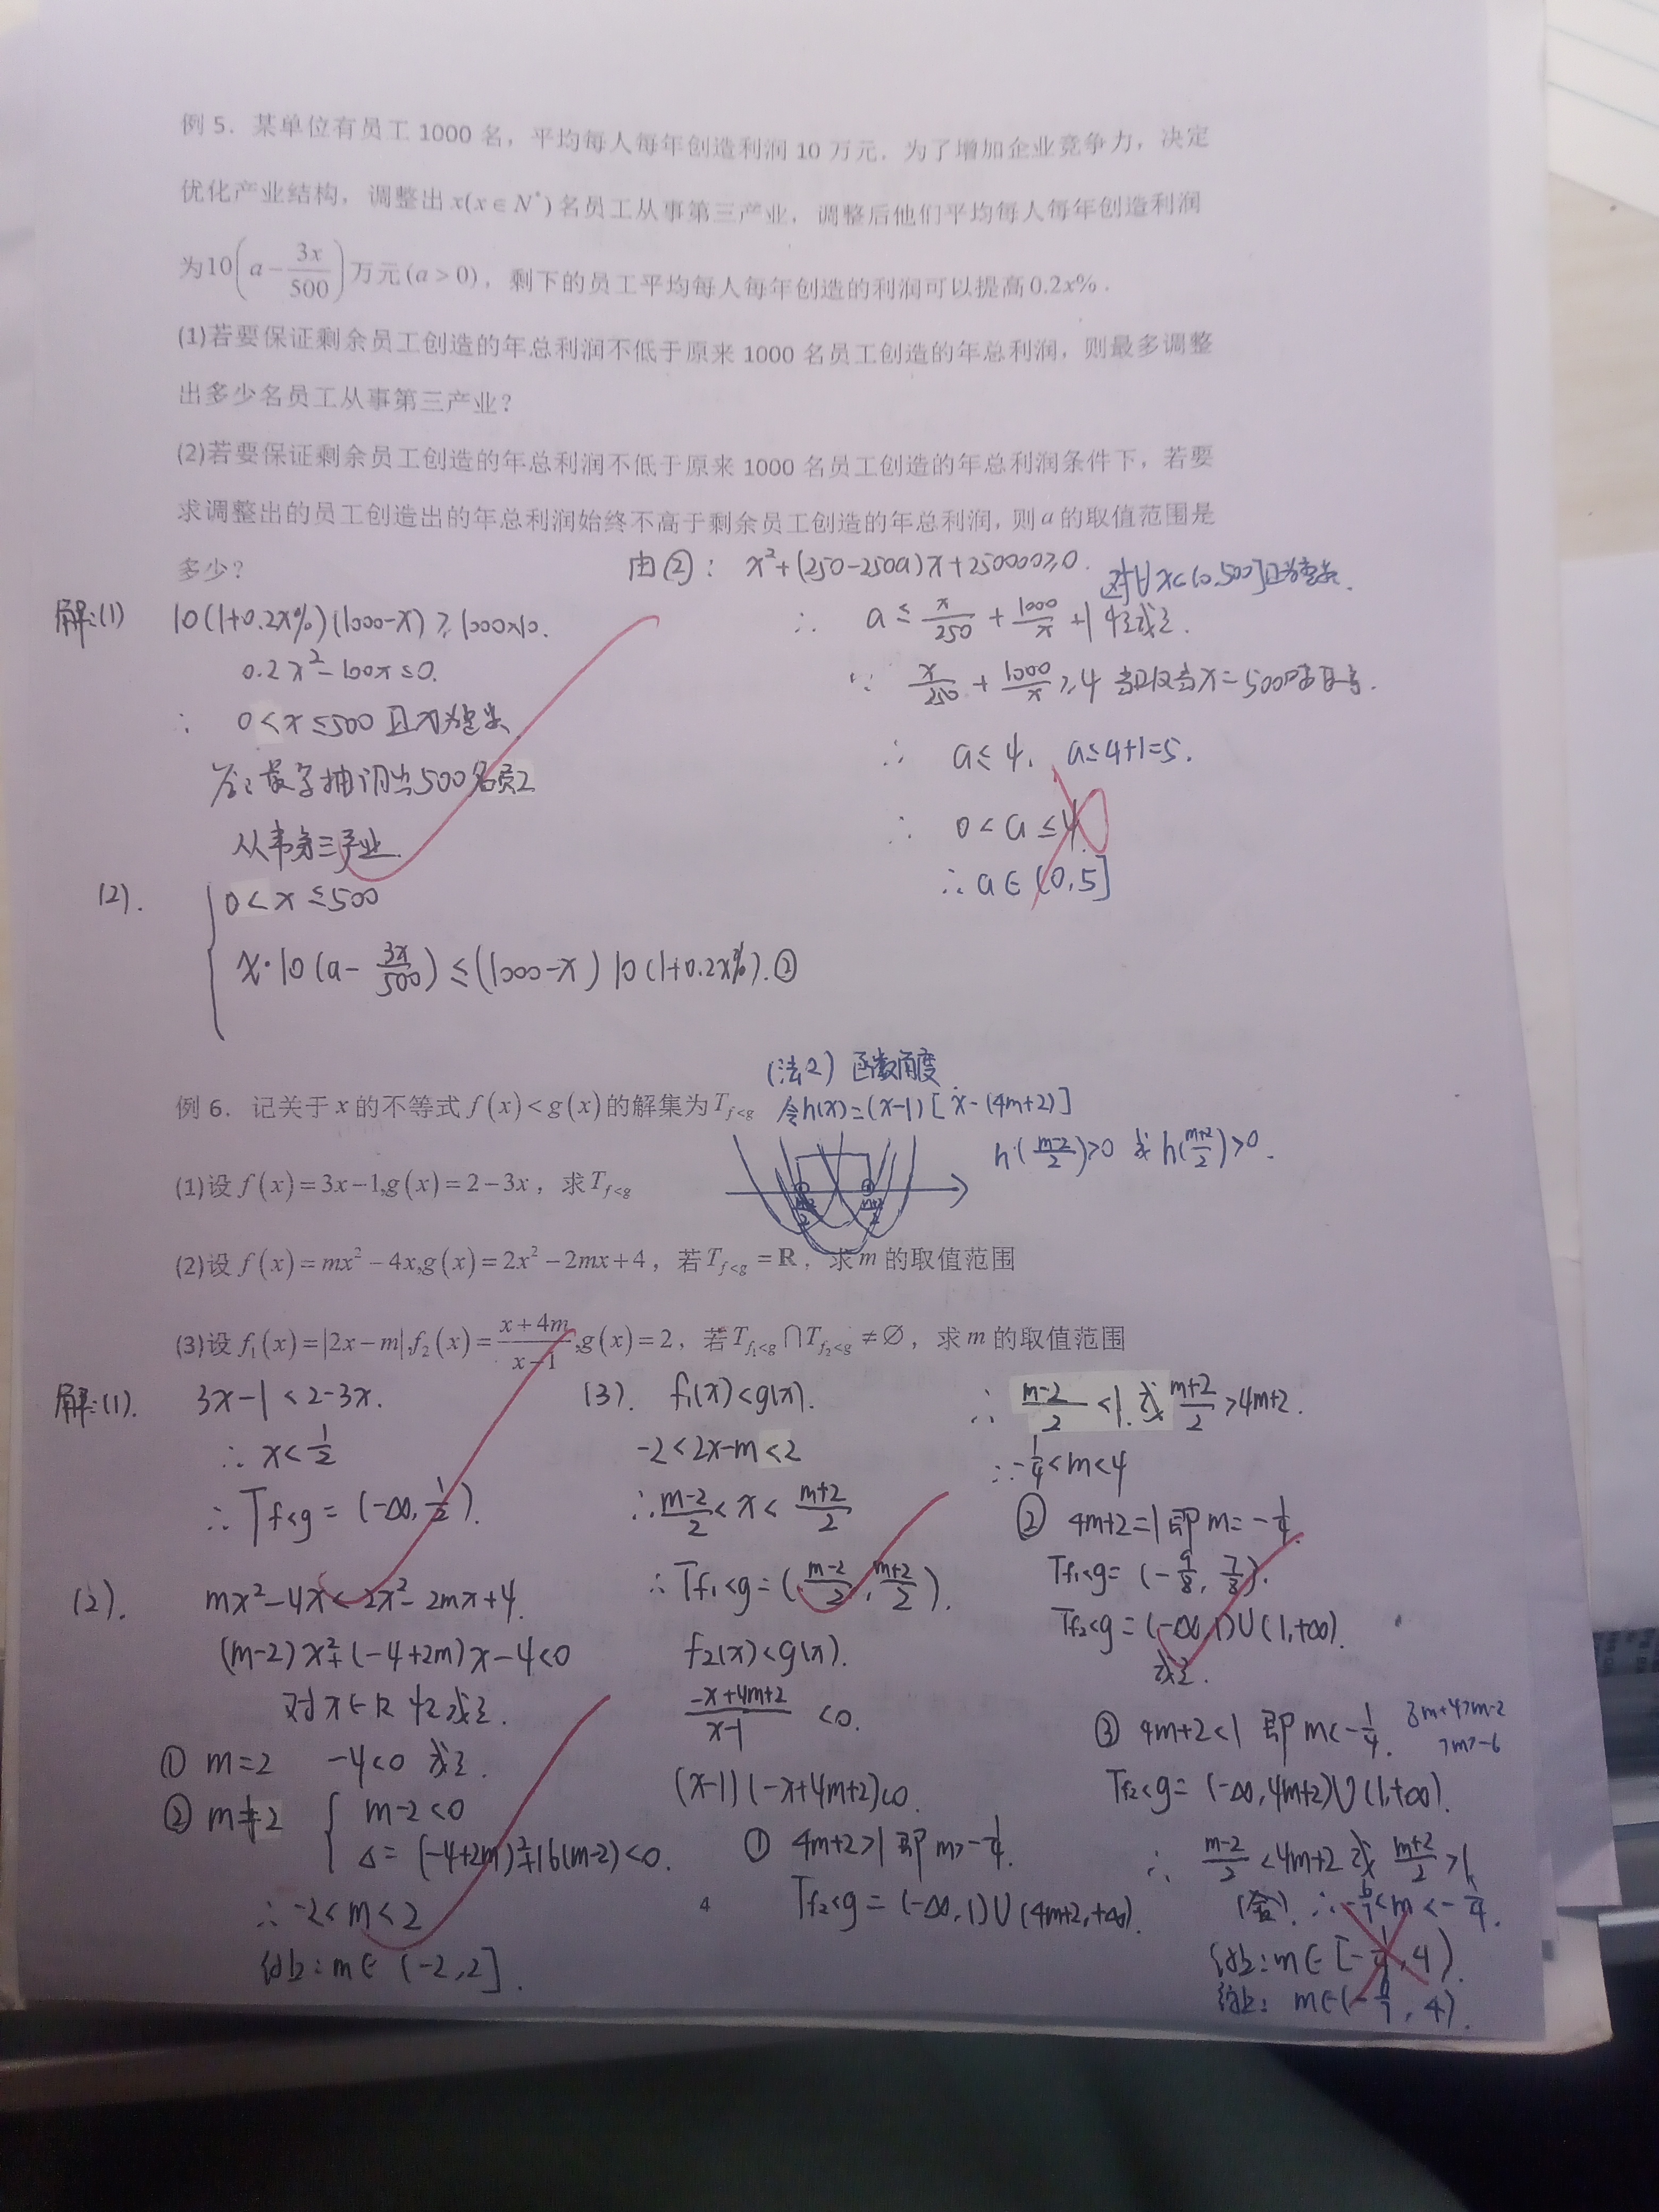 例 5．某单位有员工 1000 名，平均每人每年创造利润 10 万元．为了增加企业竞争力，决定
优化产业结构，调整出 x(x∈N*) 名员工从事第三产业，调整后他们平均每人每年创造利润
为10(a-3x/500)万元(a>0)，剩下的员工平均每人每年创造的利润可以提高0.2x%．
(1)若要保证剩余员工创造的年总利润不低于原来 1000 名员工创造的年总利润，则最多调整
出多少名员工从事第三产业？
(2)若要保证剩余员工创造的年总利润不低于原来 1000 名员工创造的年总利润条件下，若要
求调整出的员工创造出的年总利润始终不高于剩余员工创造的年总利润，则a的取值范围是
多少？
由②： x²+(250-250a)x+250000≥0. 对∀x∈(0,500]且为整数.
解:(1) 10(1+0.2x%)(1000-x)≥1000×10.
0.2x²-100x≤0.
∴ 0<x≤500 且x为整数.
答:最多抽调出500名员工
从事第三产业.
∴ a≤x/250+1000/x+1 恒成立.
∵ x/250+1000/x≥4 当且仅当x=500时取等.
∴ a≤4. a≤4+1=5.
∴ 0<a≤4
∴a∈(0,5]
(2). 0<x≤500
x·10(a-3x/500)≤(1000-x)10(1+0.2x%).②
(法2) 函数角度
例 6．记关于x的不等式f(x)<g(x)的解集为T_{f<g}
令h(x)=(x-1)[x-(4m+2)]
h(m-2/2)>0 或 h(m+2/2)>0.
m-2/2 m+2/2
(1)设f(x)=3x-1,g(x)=2-3x，求T_{f<g}
(2)设f(x)=mx²-4x,g(x)=2x²-2mx+4，若T_{f<g}=R，求m的取值范围
(3)设f₁(x)=|2x-m|,f₂(x)=x+4m/x-1,g(x)=2，若T_{f₁<g}∩T_{f₂<g}≠∅，求m的取值范围
解:(1). 3x-1<2-3x.
∴x<1/2
∴Tf<g=(-∞,1/2).
(2). mx²-4x<2x²-2mx+4.
(m-2)x²+(-4+2m)x-4<0
对x∈R恒成立.
① m=2 -4<0 成立.
② m≠2 m-2<0
Δ=(-4+2m)²+16(m-2)<0.
∴-2<m<2
综上:m∈(-2,2].
(3). f₁(x)<g(x).
-2<2x-m<2
∴m-2/2<x<m+2/2
∴Tf₁<g=(m-2/2,m+2/2).
f₂(x)<g(x).
-x+4m+2/x-1<0.
(x-1)(-x+4m+2)<0.
① 4m+2>1即m>-1/4.
Tf₂<g=(-∞,1)∪(4m+2,+∞).
∴ m-2/2<1.或 m+2/2>4m+2.
∴-1/4<m<4
② 4m+2=1即m=-1/4.
Tf₁<g=(-9/8,7/8).
Tf₂<g=(-∞,1)∪(1,+∞).
成立.
③ 4m+2<1 即m<-1/4.
8m+4>m-2
7m>-6
Tf₂<g=(-∞,4m+2)∪(1,+∞).
∴ m-2/2<4m+2 或 m+2/2>1
(舍). ∴-6/7<m<-1/4.
综上:m∈[-1/4,4).
综上: m∈(-6/7,4).
4